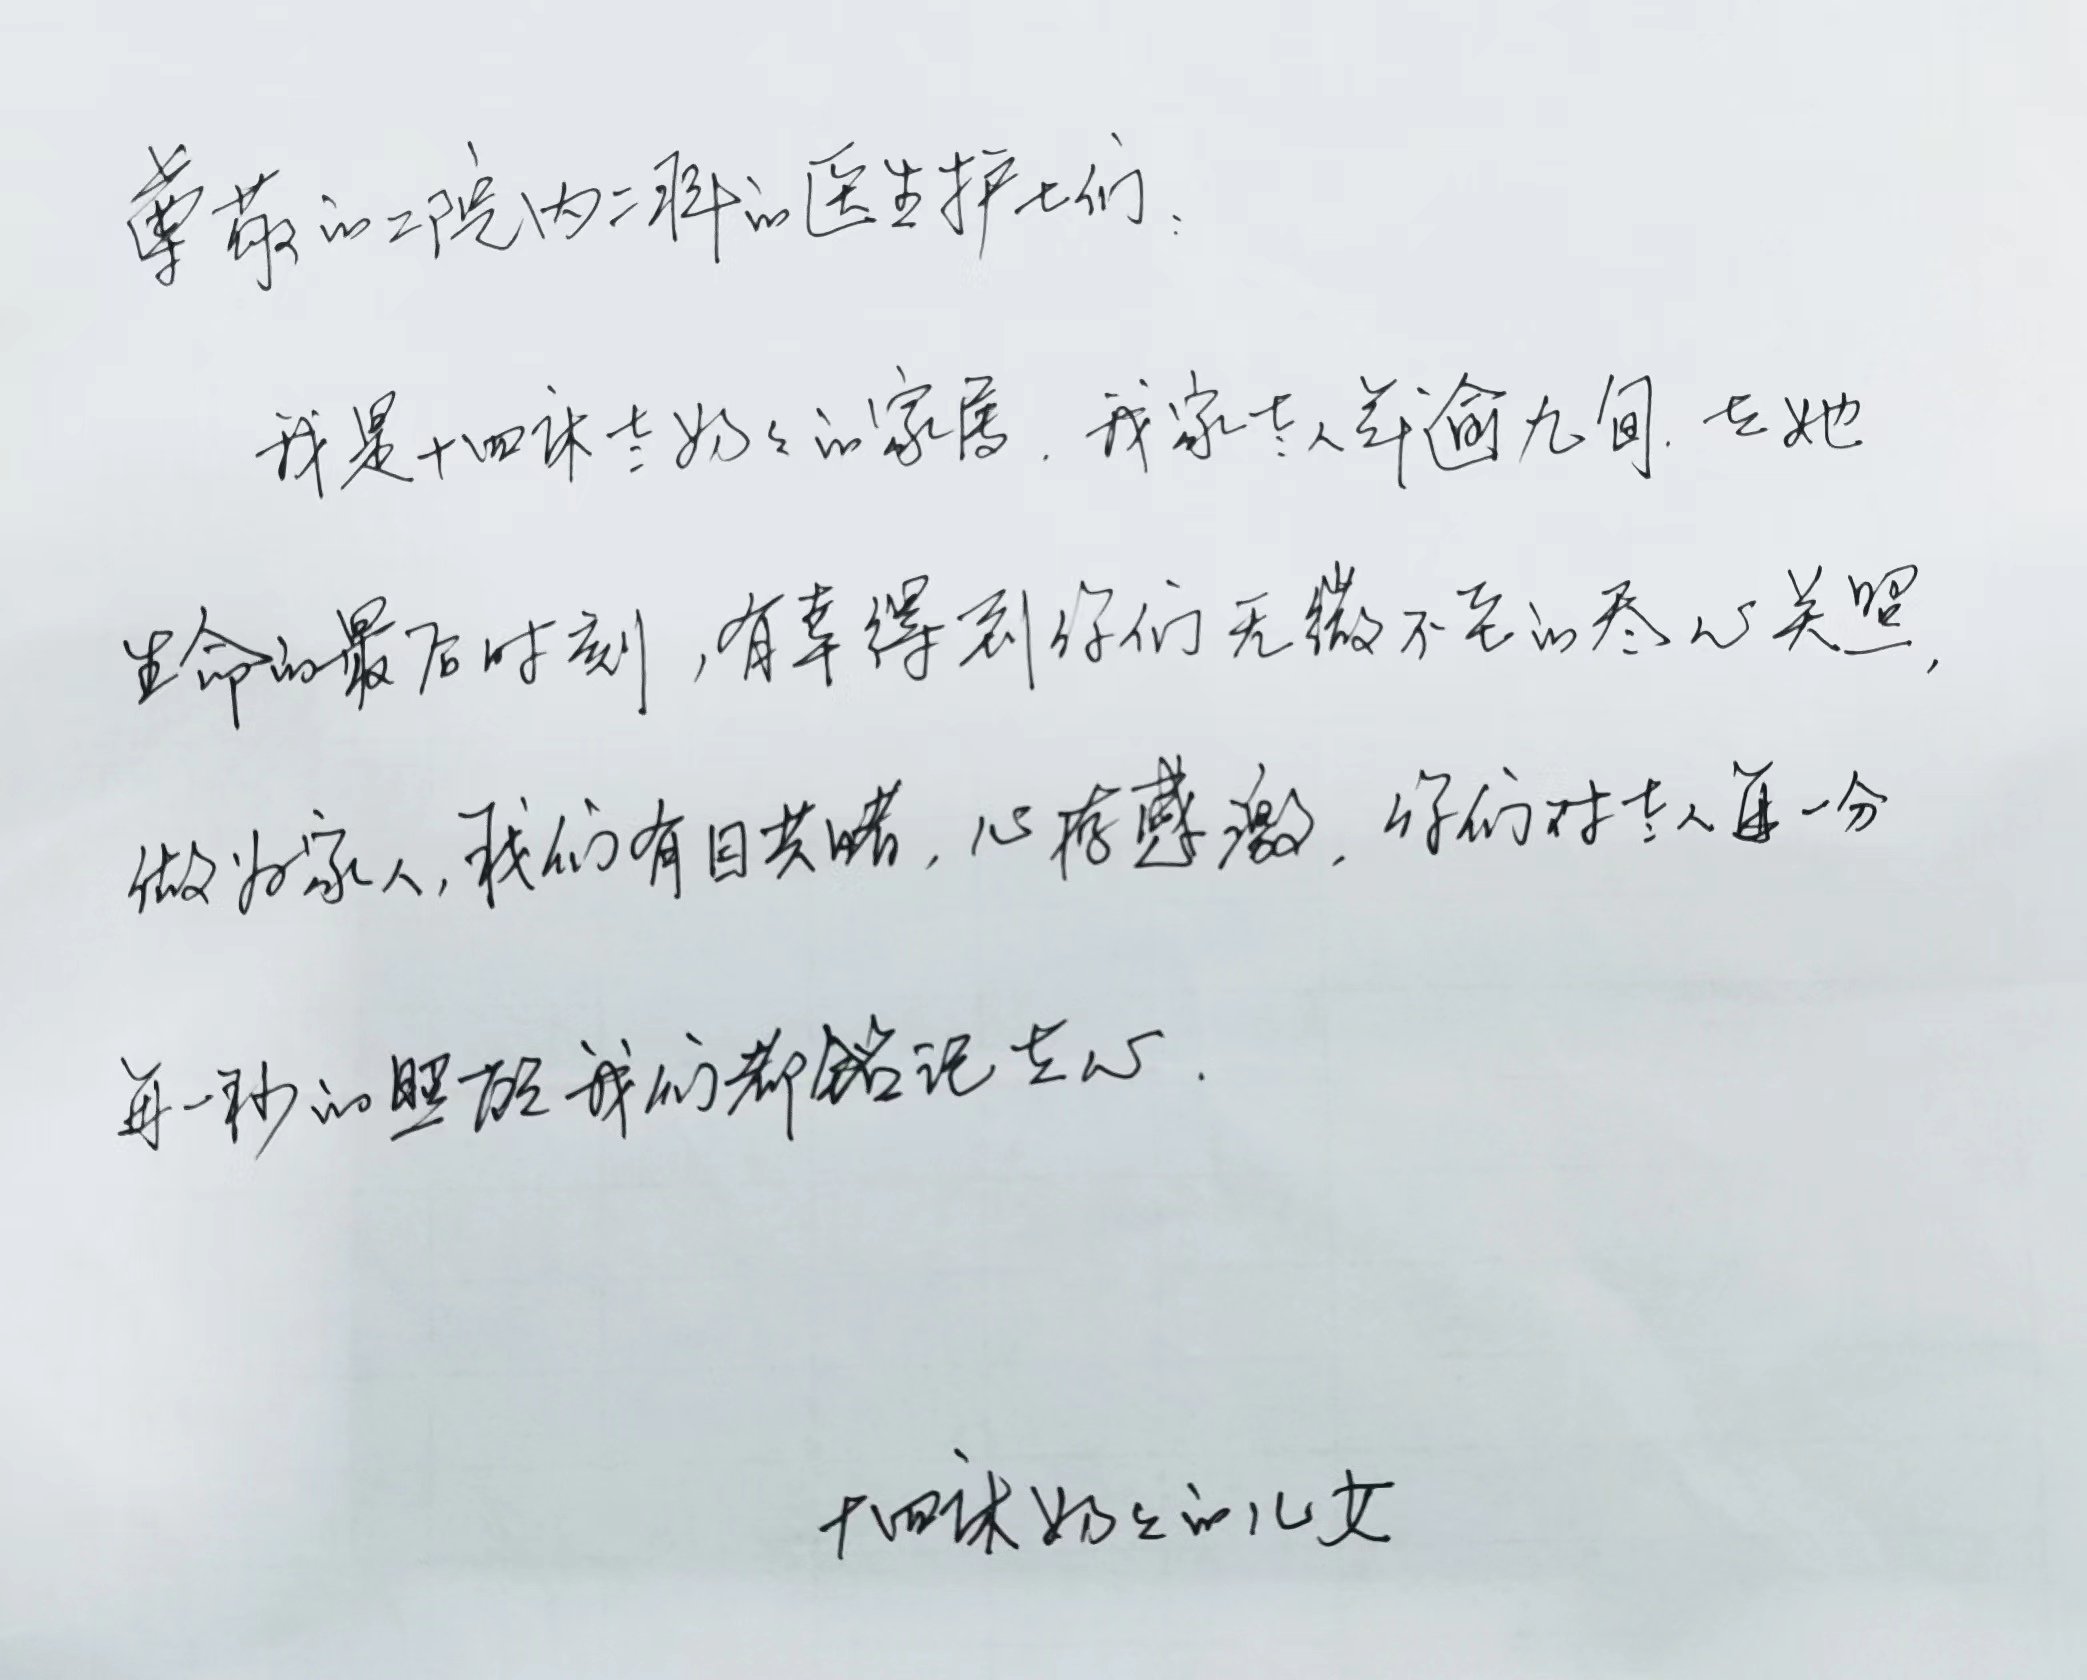 尊敬的二院内二科的医生护士们:
我是十四床老奶奶的家属.我家老人年逾九旬.在她
生命的最后时刻,有幸得到你们无微不至的尽心关照,
做为家人,我们有目共睹,心存感激.你们对老人每一分
每一秒的照顾我们都铭记在心.
十四床奶奶的儿女